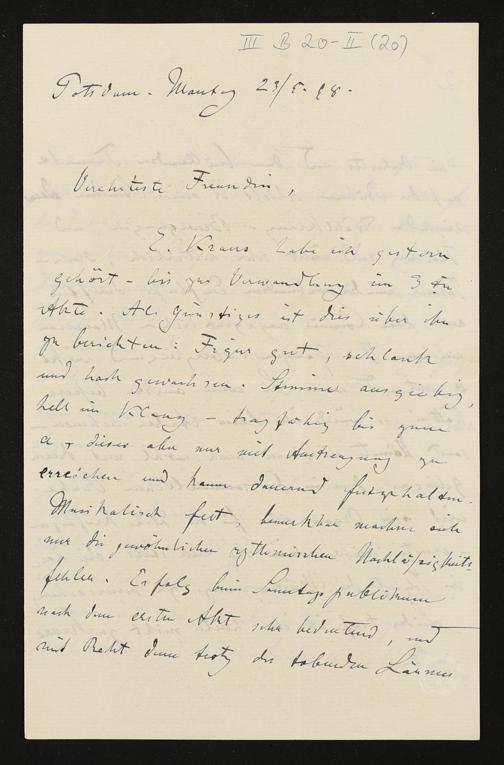 III B 20-II (20)
Potsdam - Montag 23/5. 98.
Verehrteste Freundin,
E. Kraus habe ich gestern
gehört - bis zur Verwandlung im 3ten
Akte. Als Günstiges ist dies über ihn
zu berichten: Figur gut, schlank
und hoch gewachsen. Stimme ausgiebig,
hell im Klang - tragfähig bis zum
a, dieses aber nur mit Anstrengung zu
erreichen und kaum dauernd festzuhalten.
Musikalisch fest, bemerkbar machen sich
nur die gewöhnlichen rythmischen Nachläßigkeits-
fehler. Erfolg beim Sonntagspublikum
nach dem ersten Akt sehr bedeutend, und
mit Recht denn trotz des tobenden Lärmes